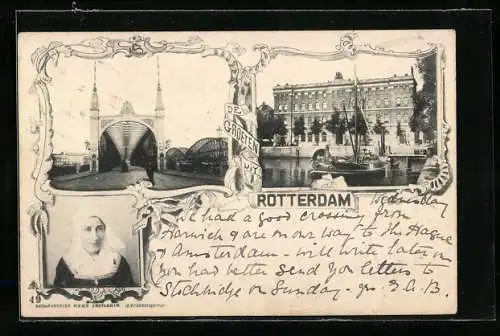 DE
GROETEN
UIT
ROTTERDAM
Wednesday
We had a good crossing from
Harwich & are on our way to the Hague
& Amsterdam - will write later on
You had better send your letters to
on Sunday - yrs
49